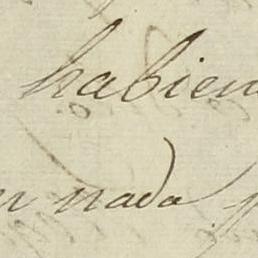 habien
nada